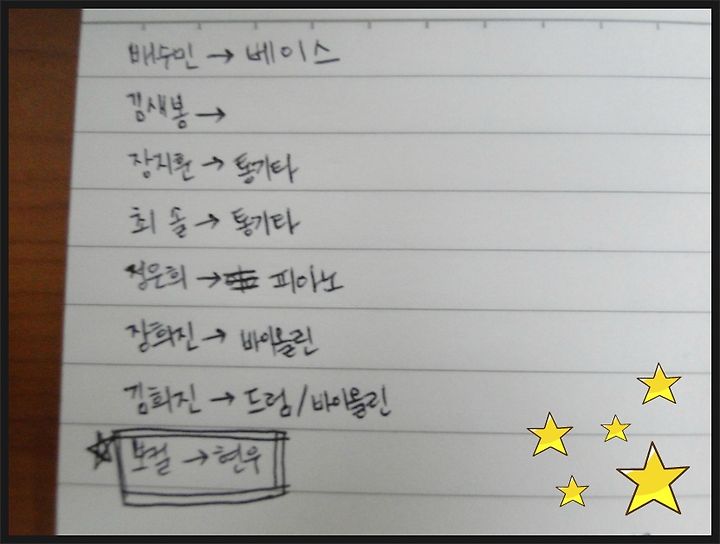 배수민 → 베이스
김새봉 →
장지훈 → 통기타
최솔 → 통기타
정은희 → 피아노
장희진 → 바이올린
김희진 → 드럼/바이올린
☆ 보컬 → 현우